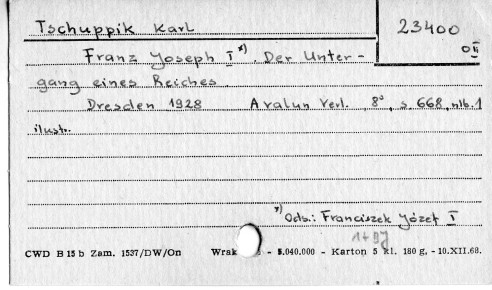 Tschuppik Karl
23400
OII
Franz Joseph I *). Der Unter-
gang eines Reiches.
Dresden 1928 Avalun Verl., 8°, s. 668, nlb. 1
ilustr.
*) Odb.: Franciszek Józef I
CWD B 15 b Zam. 1537/DW/On Wrak - 5.040.000 - Karton 5 kl. 180 g, - 10.XII.68.